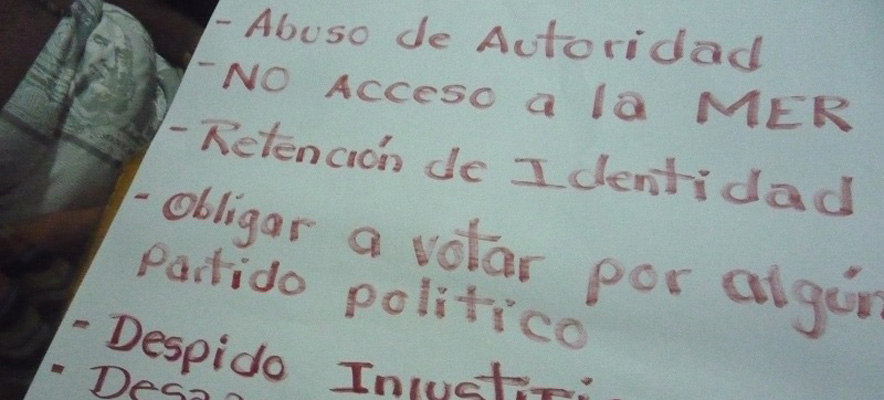 - Abuso de Autoridad
- NO Acceso a la MER
- Retención de Identidad
- Obligar a votar por algún
Partido politico
- Despido